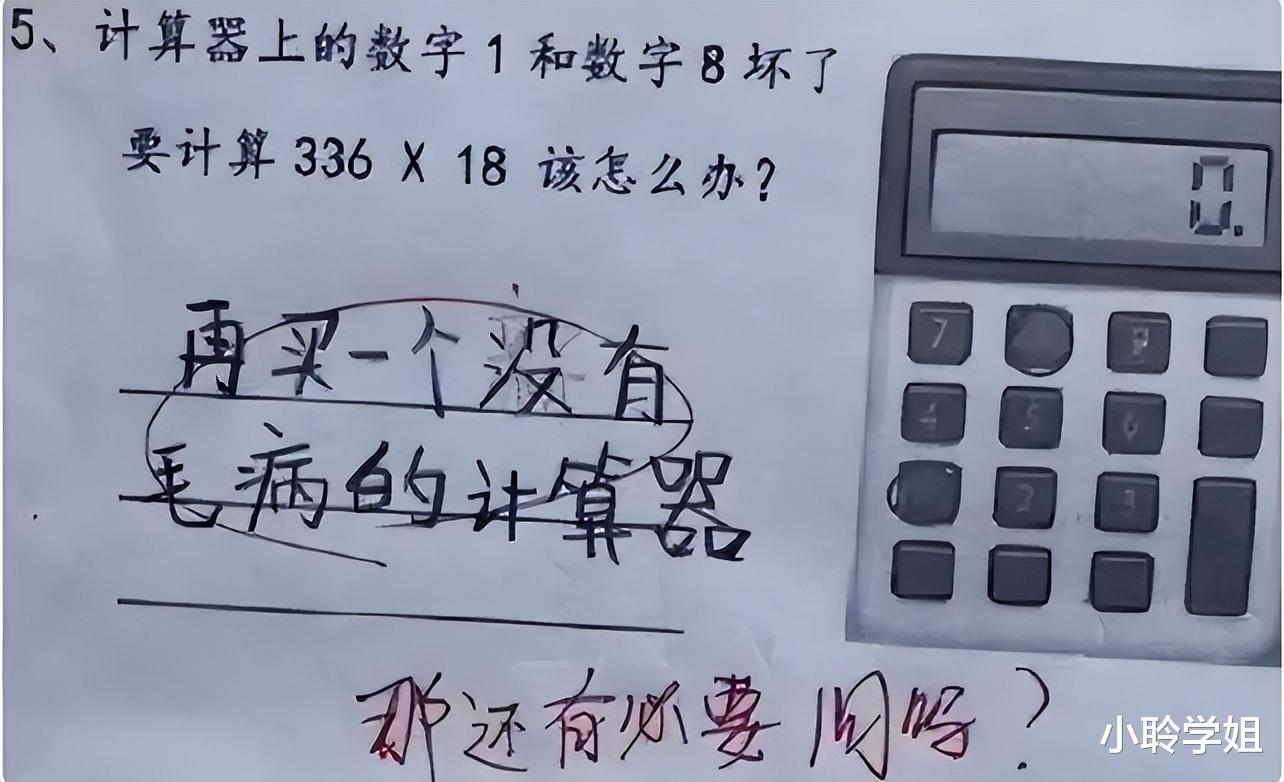 5、计算器上的数字1和数字8坏了
要计算336 X 18 该怎么办?
再买一个没有
毛病的计算器
那还有必要问吗?
0.
7
9
4 5 6
2 3
小聆学姐